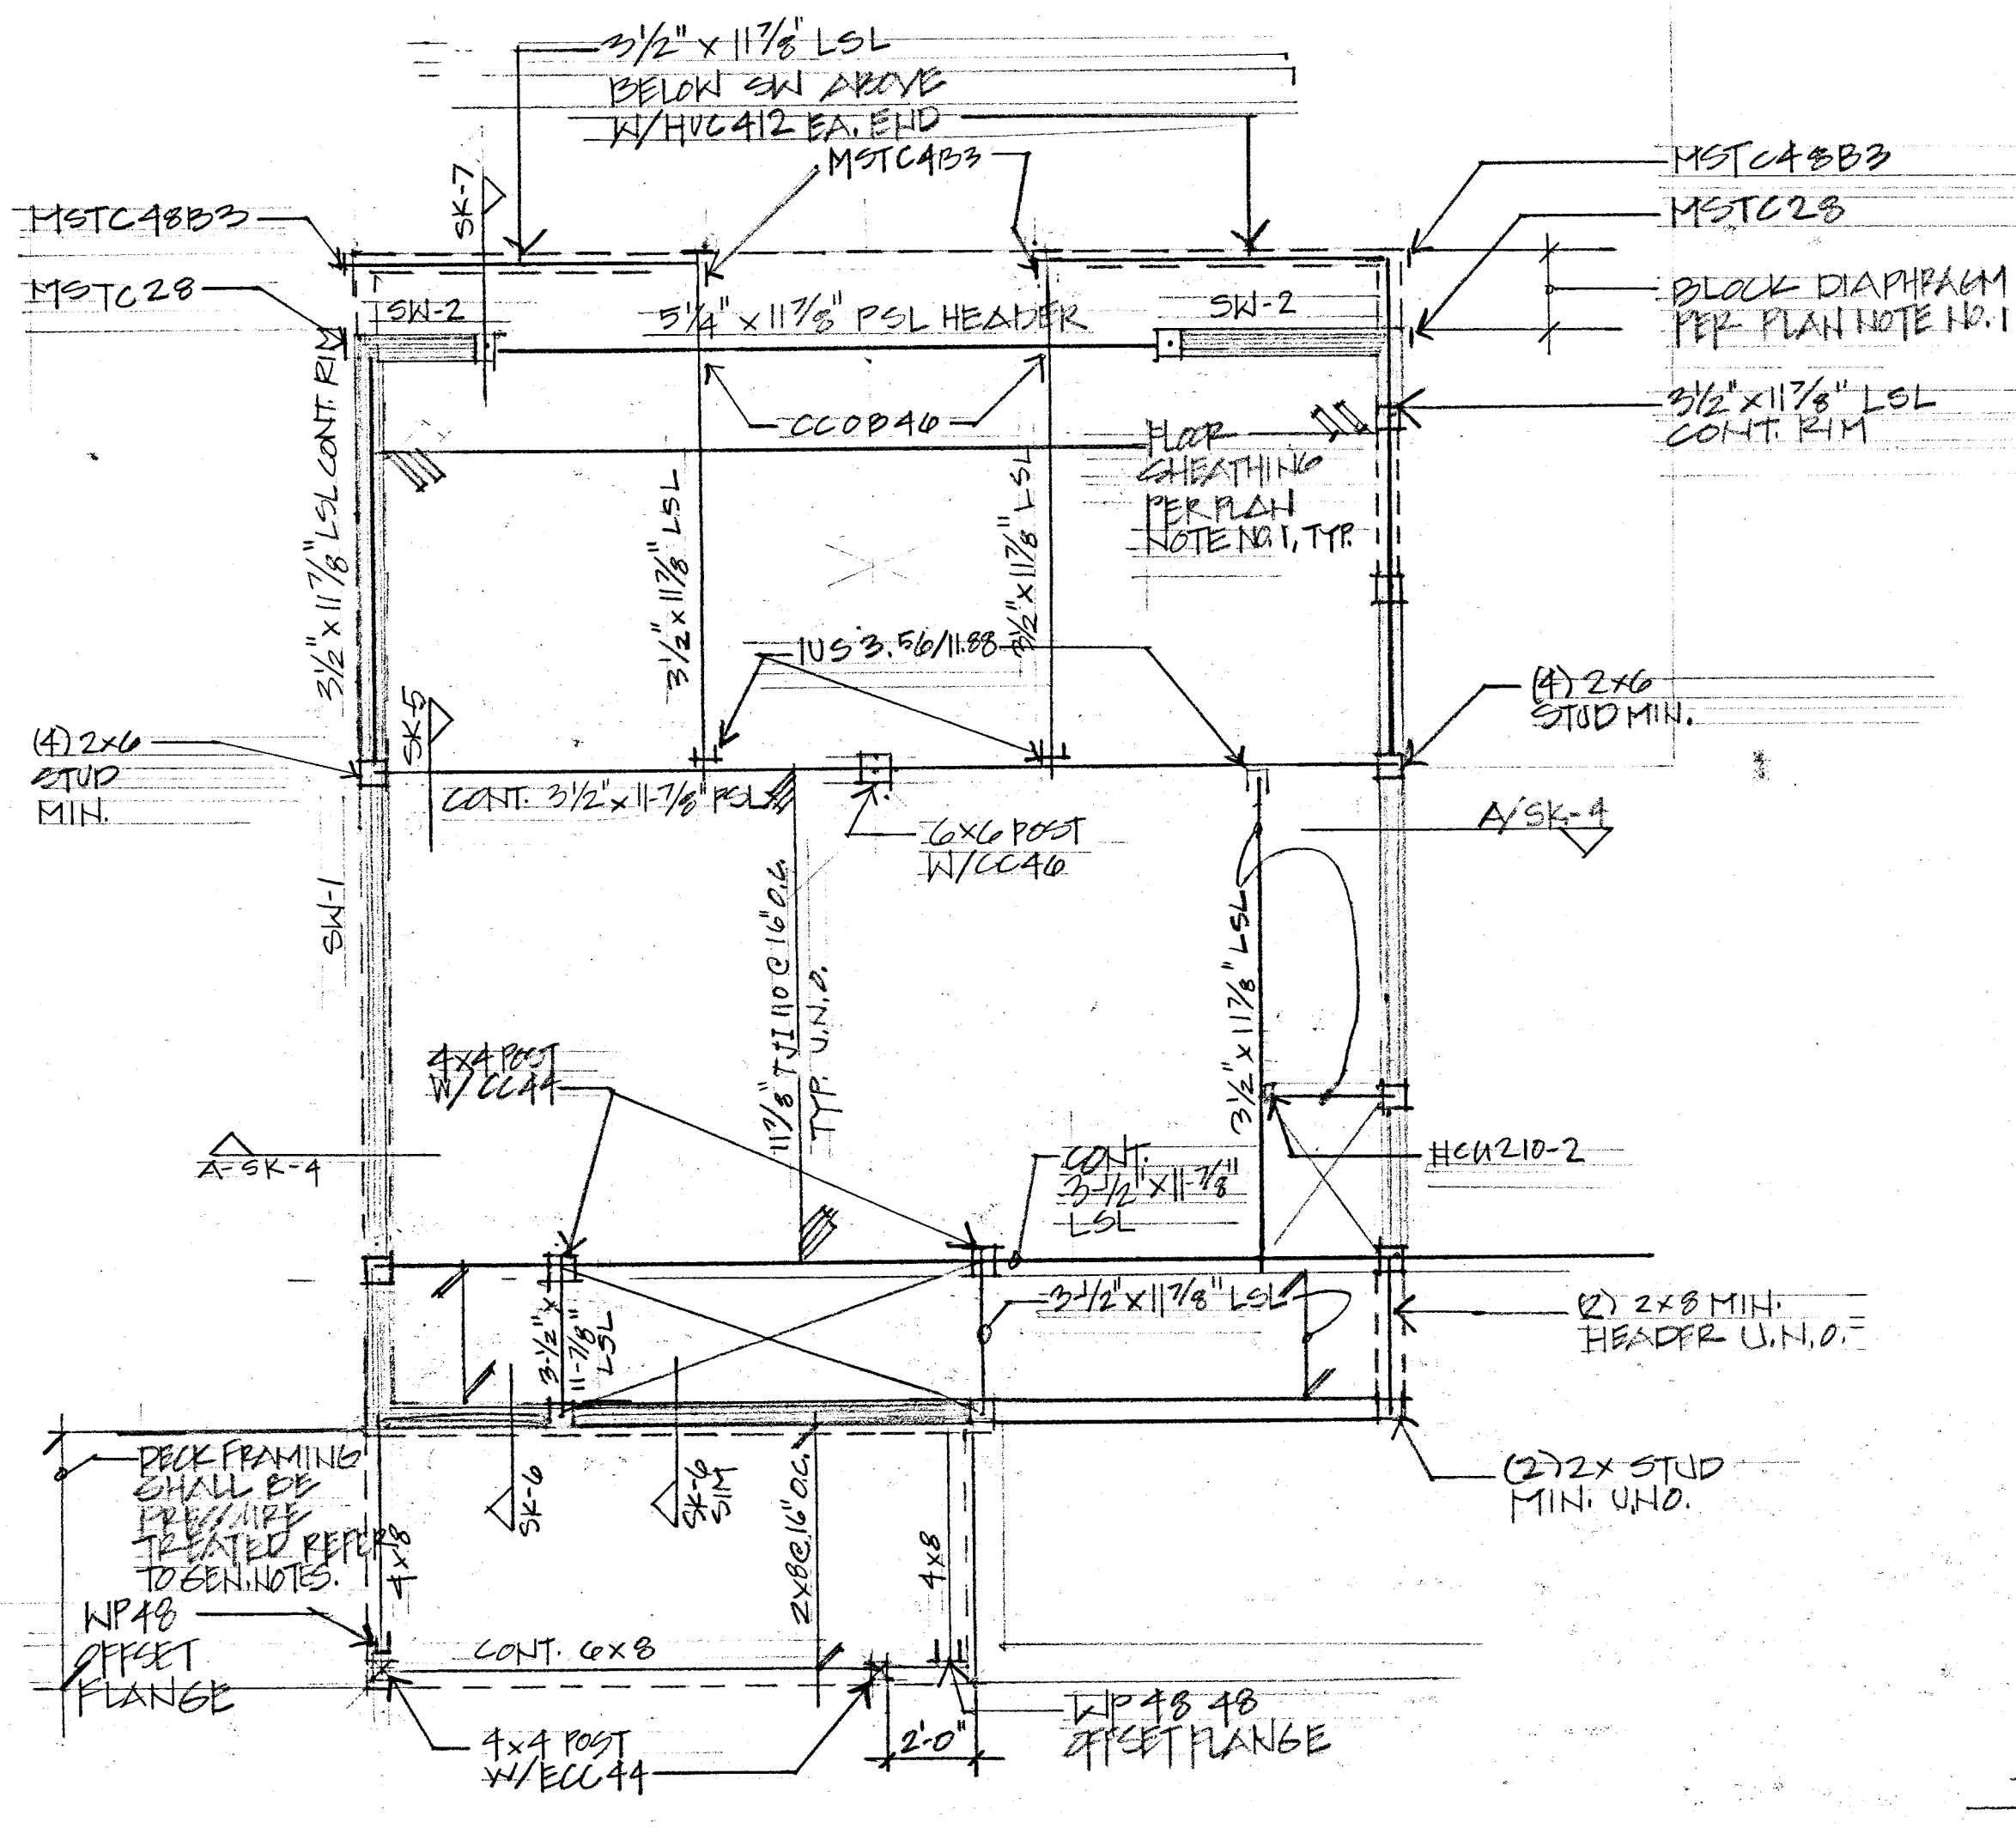 3 1/2" x 11 7/8" LSL
BELOW SW ABOVE
W/HUC412 EA. END
MSTC4B3
SK-7
MSTC48B3
MSTC28
MSTC48B3
MSTC28
BLOCK DIAPHRAGM
PER PLAN NOTE NO. 1
SW-2
5 1/4" x 11 7/8" PSL HEADER
SW-2
3 1/2" x 11 7/8" LSL
CONT. RIM
CCOB46
3 1/2" x 11 7/8" LSL CONT. RIM
FLOOR
SHEATHING
PER PLAN
NOTE NO. 1, TYP.
3 1/2" x 11 7/8" LSL
3 1/2" x 11 7/8" LSL
IUS 3.56/11.88
(4) 2x6
STUD MIN.
SK-5
(4) 2x6
STUD
MIN.
CONT. 3 1/2" x 11-7/8" PSL
6x6 POST
W/CC46
A/SK-4
SW-1
11 7/8" TJI 110 @ 16" O.C.
TYP. U.N.O.
3 1/2" x 11 7/8" LSL
4x4 POST
W/CC44
A-SK-4
CONT.
3-1/2" x 11-7/8"
LSL
HCU210-2
3-1/2" x
11-7/8"
LSL
3-1/2" x 11 7/8" LSL
(2) 2x8 MIN.
HEADER U.N.O.
DECK FRAMING
SHALL BE
PRESSURE
TREATED REFER
TO GEN. NOTES.
SK-6
SK-6
SIM
2x8 @ 16" O.C.
4x8
4x8
(2) 2x STUD
MIN. U.N.O.
WP48
OFFSET
FLANGE
CONT. 6x8
4x4 POST
W/ECC44
2'-0"
WP 48 48
OFFSET FLANGE